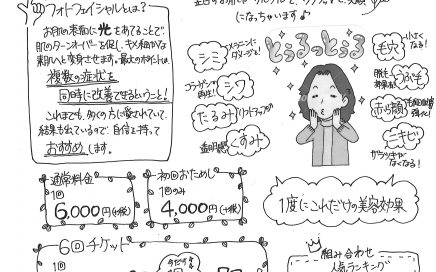 になっちゃいます♪
フォトフェイシャルとは?
お肌の表面に光をあてることで
肌のターンオーバーを促し、キメ細やかな
美肌へと変身させます。最大のポイントは、
複数の症状を
同時に改善できるということ!
これまでも、多くの方に愛されていて、
結果も出ているので、自信を持って
おすすめします。
とぅるっとぅる
シミ
メラニンに
ダメージを!
シワ
コラーゲンの
再生!
たるみ
リフトアップ
くすみ
透明感
毛穴
小さく
なる!
うぶ毛
脱毛
効果も
赤ら顔
ニキビ
できにくく
なる!
1度にこれだけの美容効果
通常料金
1回
6,000円(+税)
初回おためし
1回のみ
4,000円(+税)
6回チケット
1回
組み合わせ
人気ランキング